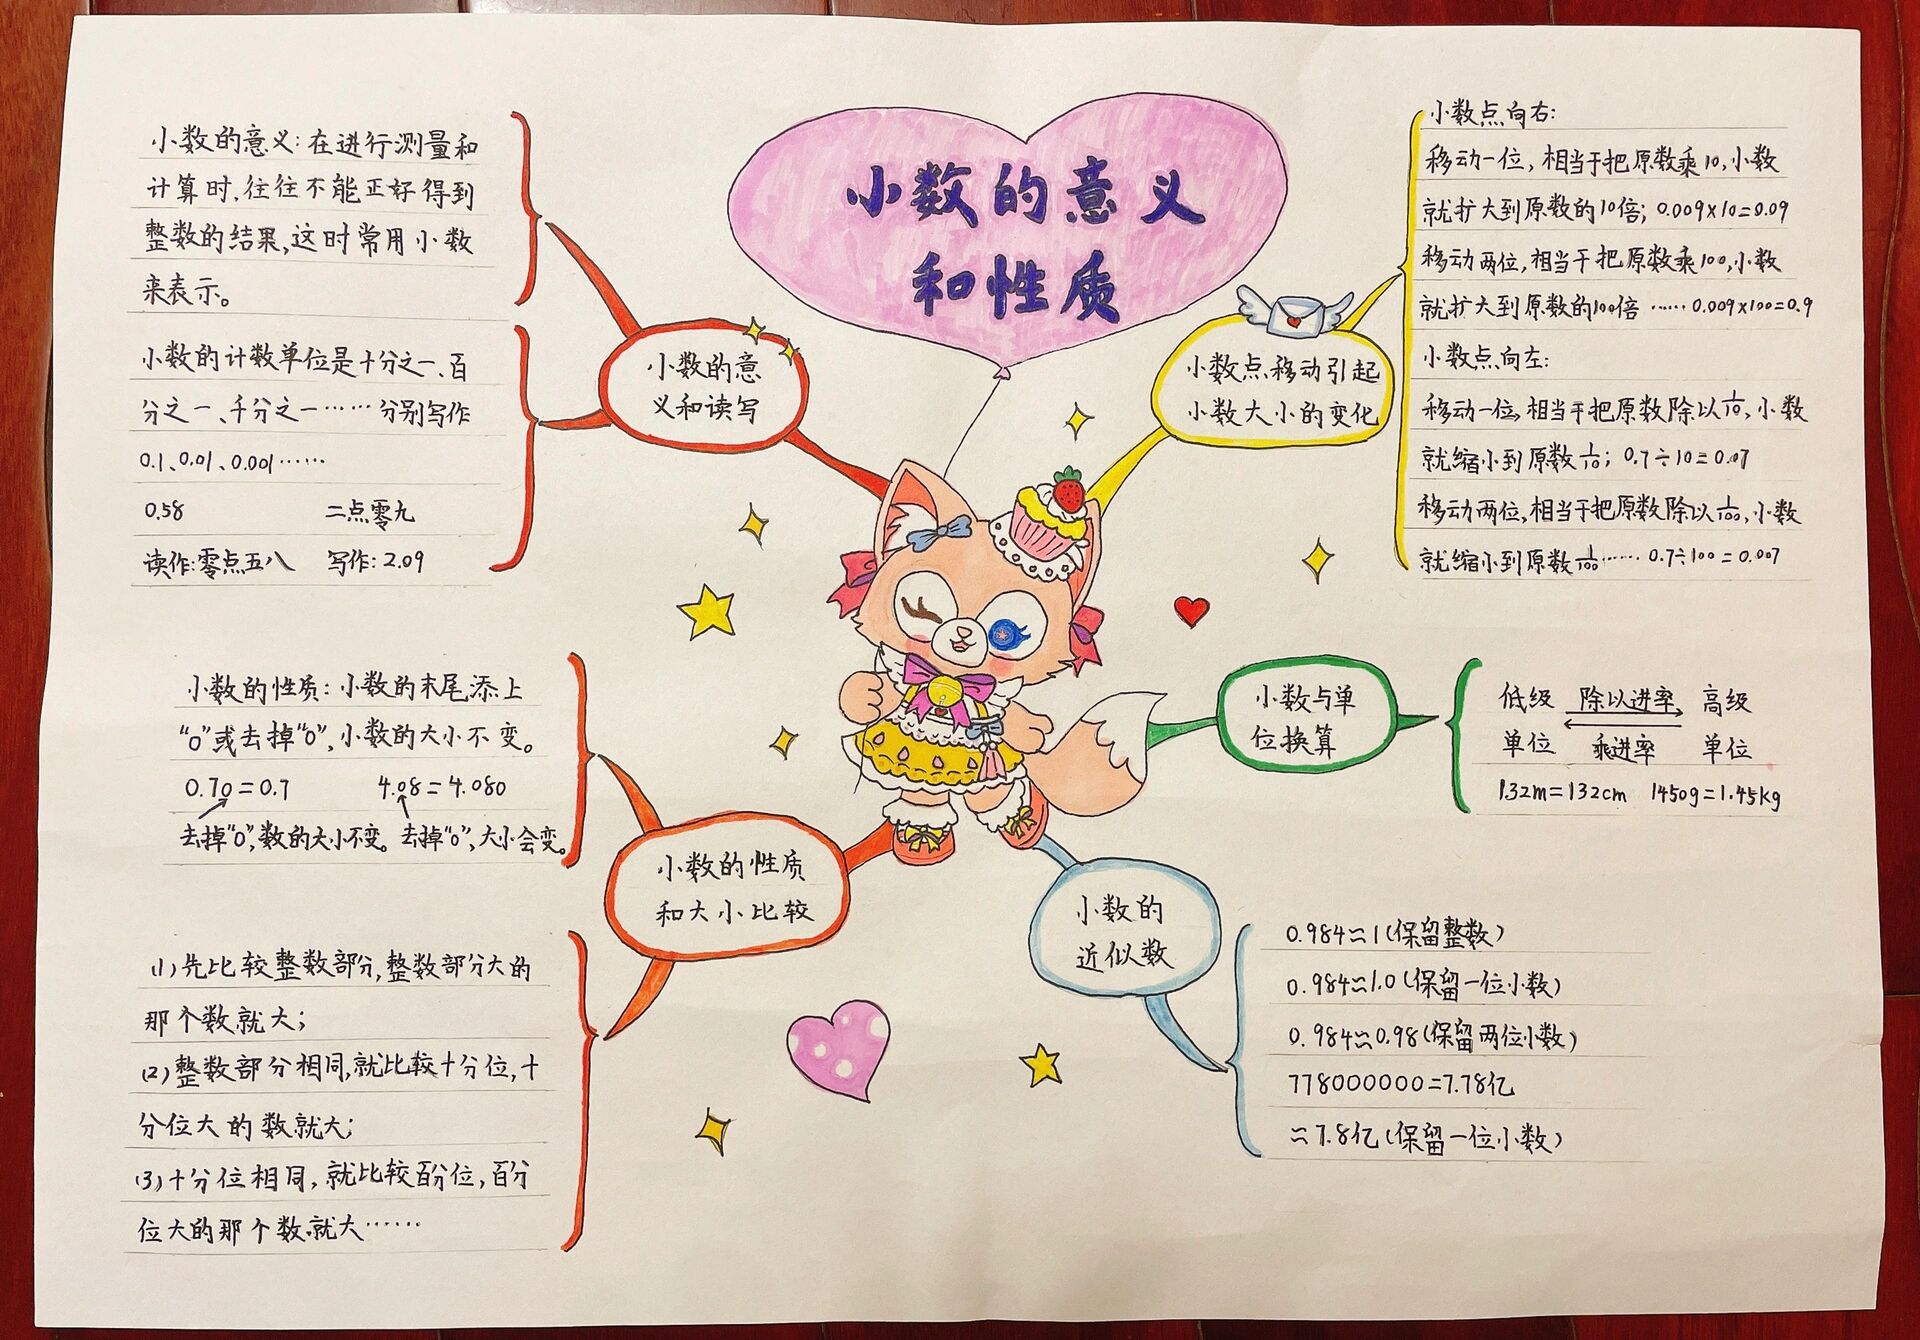 小数的意义
和性质
小数的意义:在进行测量和
计算时,往往不能正好得到
整数的结果,这时常用小数
来表示。
小数的计数单位是十分之一、百
分之一、千分之一……分别写作
0.1、0.01、0.001……
0.58 二点零九
读作:零点五八 写作:2.09
小数的意
义和读写
小数的性质:小数的末尾添上
“0”或去掉“0”,小数的大小不变。
0.70=0.7 4.08=4.080
去掉“0”,数的大小不变。 去掉“0”,大小会变。
小数的性质
和大小比较
(1)先比较整数部分,整数部分大的
那个数就大;
(2)整数部分相同,就比较十分位,十
分位大的数就大;
(3)十分位相同,就比较百分位,百分
位大的那个数就大……
小数点移动引起
小数大小的变化
小数点向右:
移动一位,相当于把原数乘10,小数
就扩大到原数的10倍;0.009×10=0.09
移动两位,相当于把原数乘100,小数
就扩大到原数的100倍……0.009×100=0.9
小数点向左:
移动一位,相当于把原数除以1/10,小数
就缩小到原数1/10;0.7÷10=0.07
移动两位,相当于把原数除以1/100,小数
就缩小到原数1/100……0.7÷100=0.007
小数与单
位换算
低级 除以进率 高级
单位 乘进率 单位
1.32m=132cm 1450g=1.45kg
小数的
近似数
0.984≈1(保留整数)
0.984≈1.0(保留一位小数)
0.984≈0.98(保留两位小数)
778000000=7.78亿
≈7.8亿(保留一位小数)